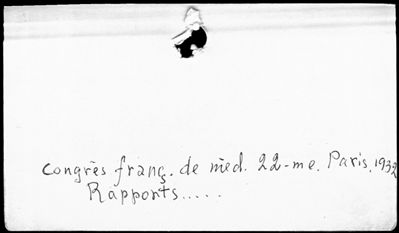 Congrès franç. de méd. 22-me. Paris, 1932
Rapports.....